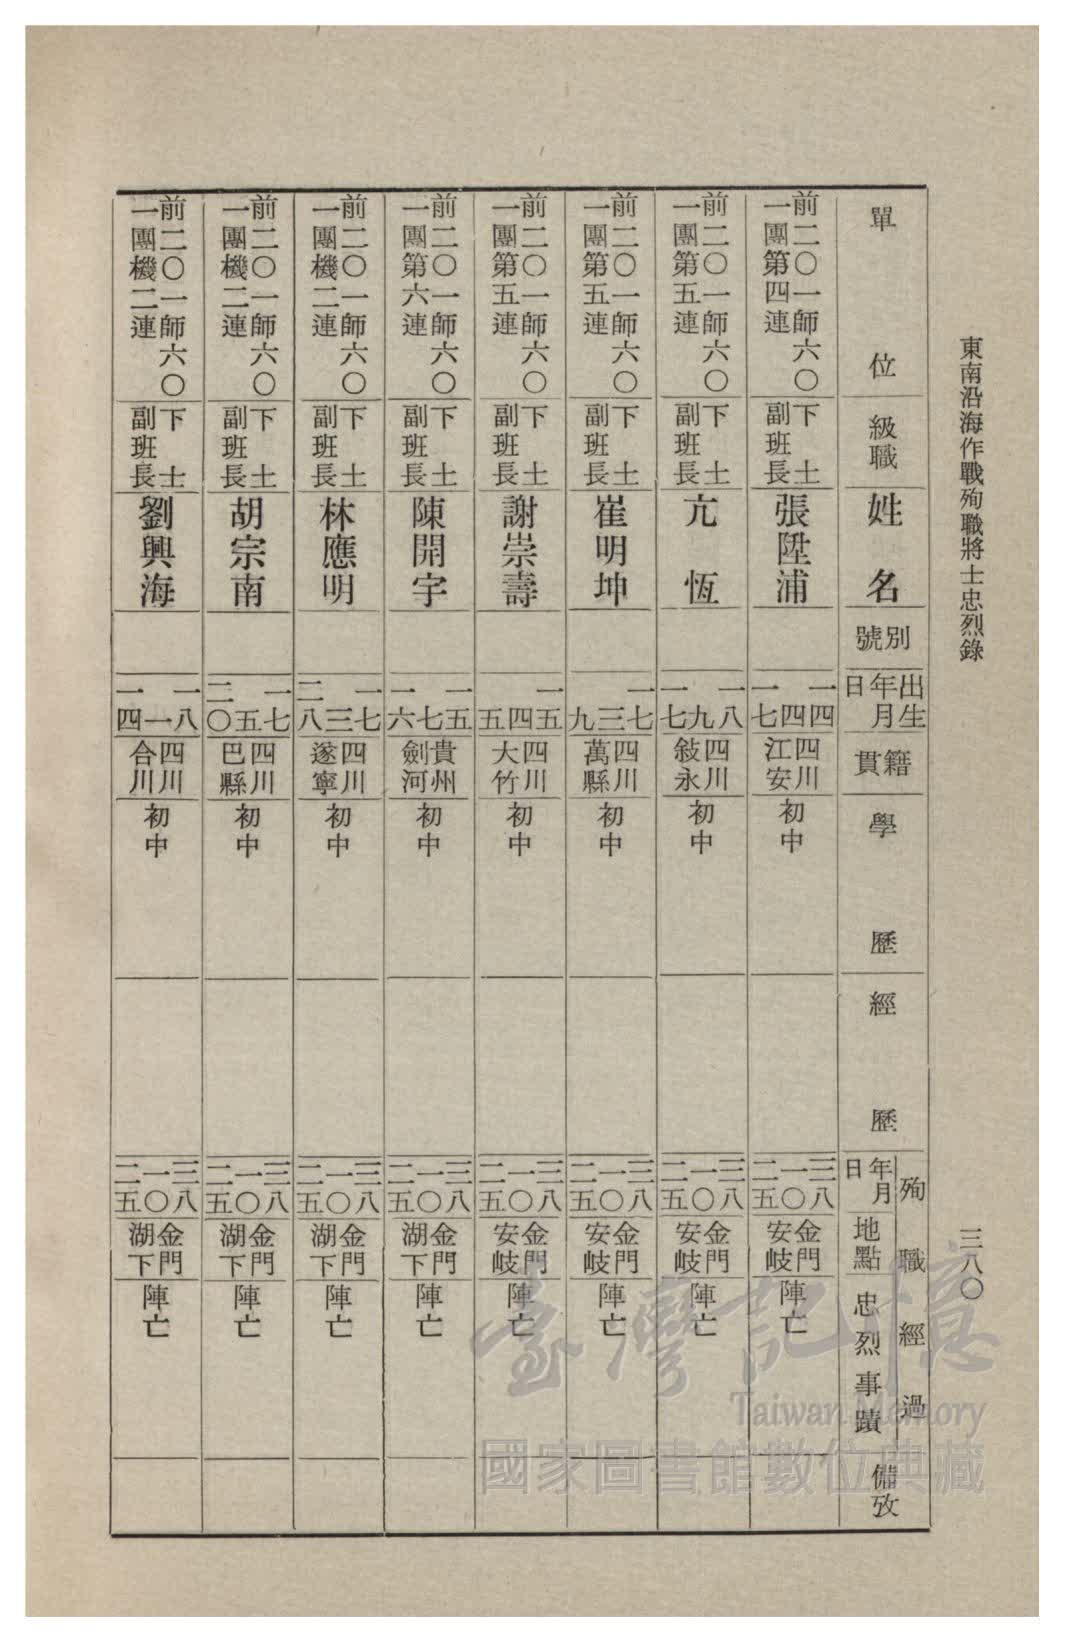 東南沿海作戰殉職將士忠烈錄
三八〇
單位
級職
姓名
別號
出生年月日
籍貫
學歷
經歷
殉職經過
年月日
地點
忠烈事蹟
備攷
前二〇一師六〇
一團第四連
下士
副班長
張陞浦
一四
四
一七
四川
江安
初中
三八
一〇
二五
金門
安岐
陣亡
前二〇一師六〇
一團第五連
下士
副班長
亢恆
一八
九
一七
四川
敍永
初中
三八
一〇
二五
金門
安岐
陣亡
前二〇一師六〇
一團第五連
下士
副班長
崔明坤
一七
三
九
四川
萬縣
初中
三八
一〇
二五
金門
安岐
陣亡
前二〇一師六〇
一團第五連
下士
副班長
謝崇壽
一五
四
五
四川
大竹
初中
三八
一〇
二五
金門
安岐
陣亡
前二〇一師六〇
一團第六連
下士
副班長
陳開宇
一五
七
一六
貴州
劍河
初中
三八
一〇
二五
金門
湖下
陣亡
前二〇一師六〇
一團機二連
下士
副班長
林應明
一七
三
二八
四川
遂寧
初中
三八
一〇
二五
金門
湖下
陣亡
前二〇一師六〇
一團機二連
下士
副班長
胡宗南
一七
五
二〇
四川
巴縣
初中
三八
一〇
二五
金門
湖下
陣亡
前二〇一師六〇
一團機二連
下士
副班長
劉興海
一八
一
一四
四川
合川
初中
三八
一〇
二五
金門
湖下
陣亡
臺灣記憶
Taiwan Memory
國家圖書館數位典藏